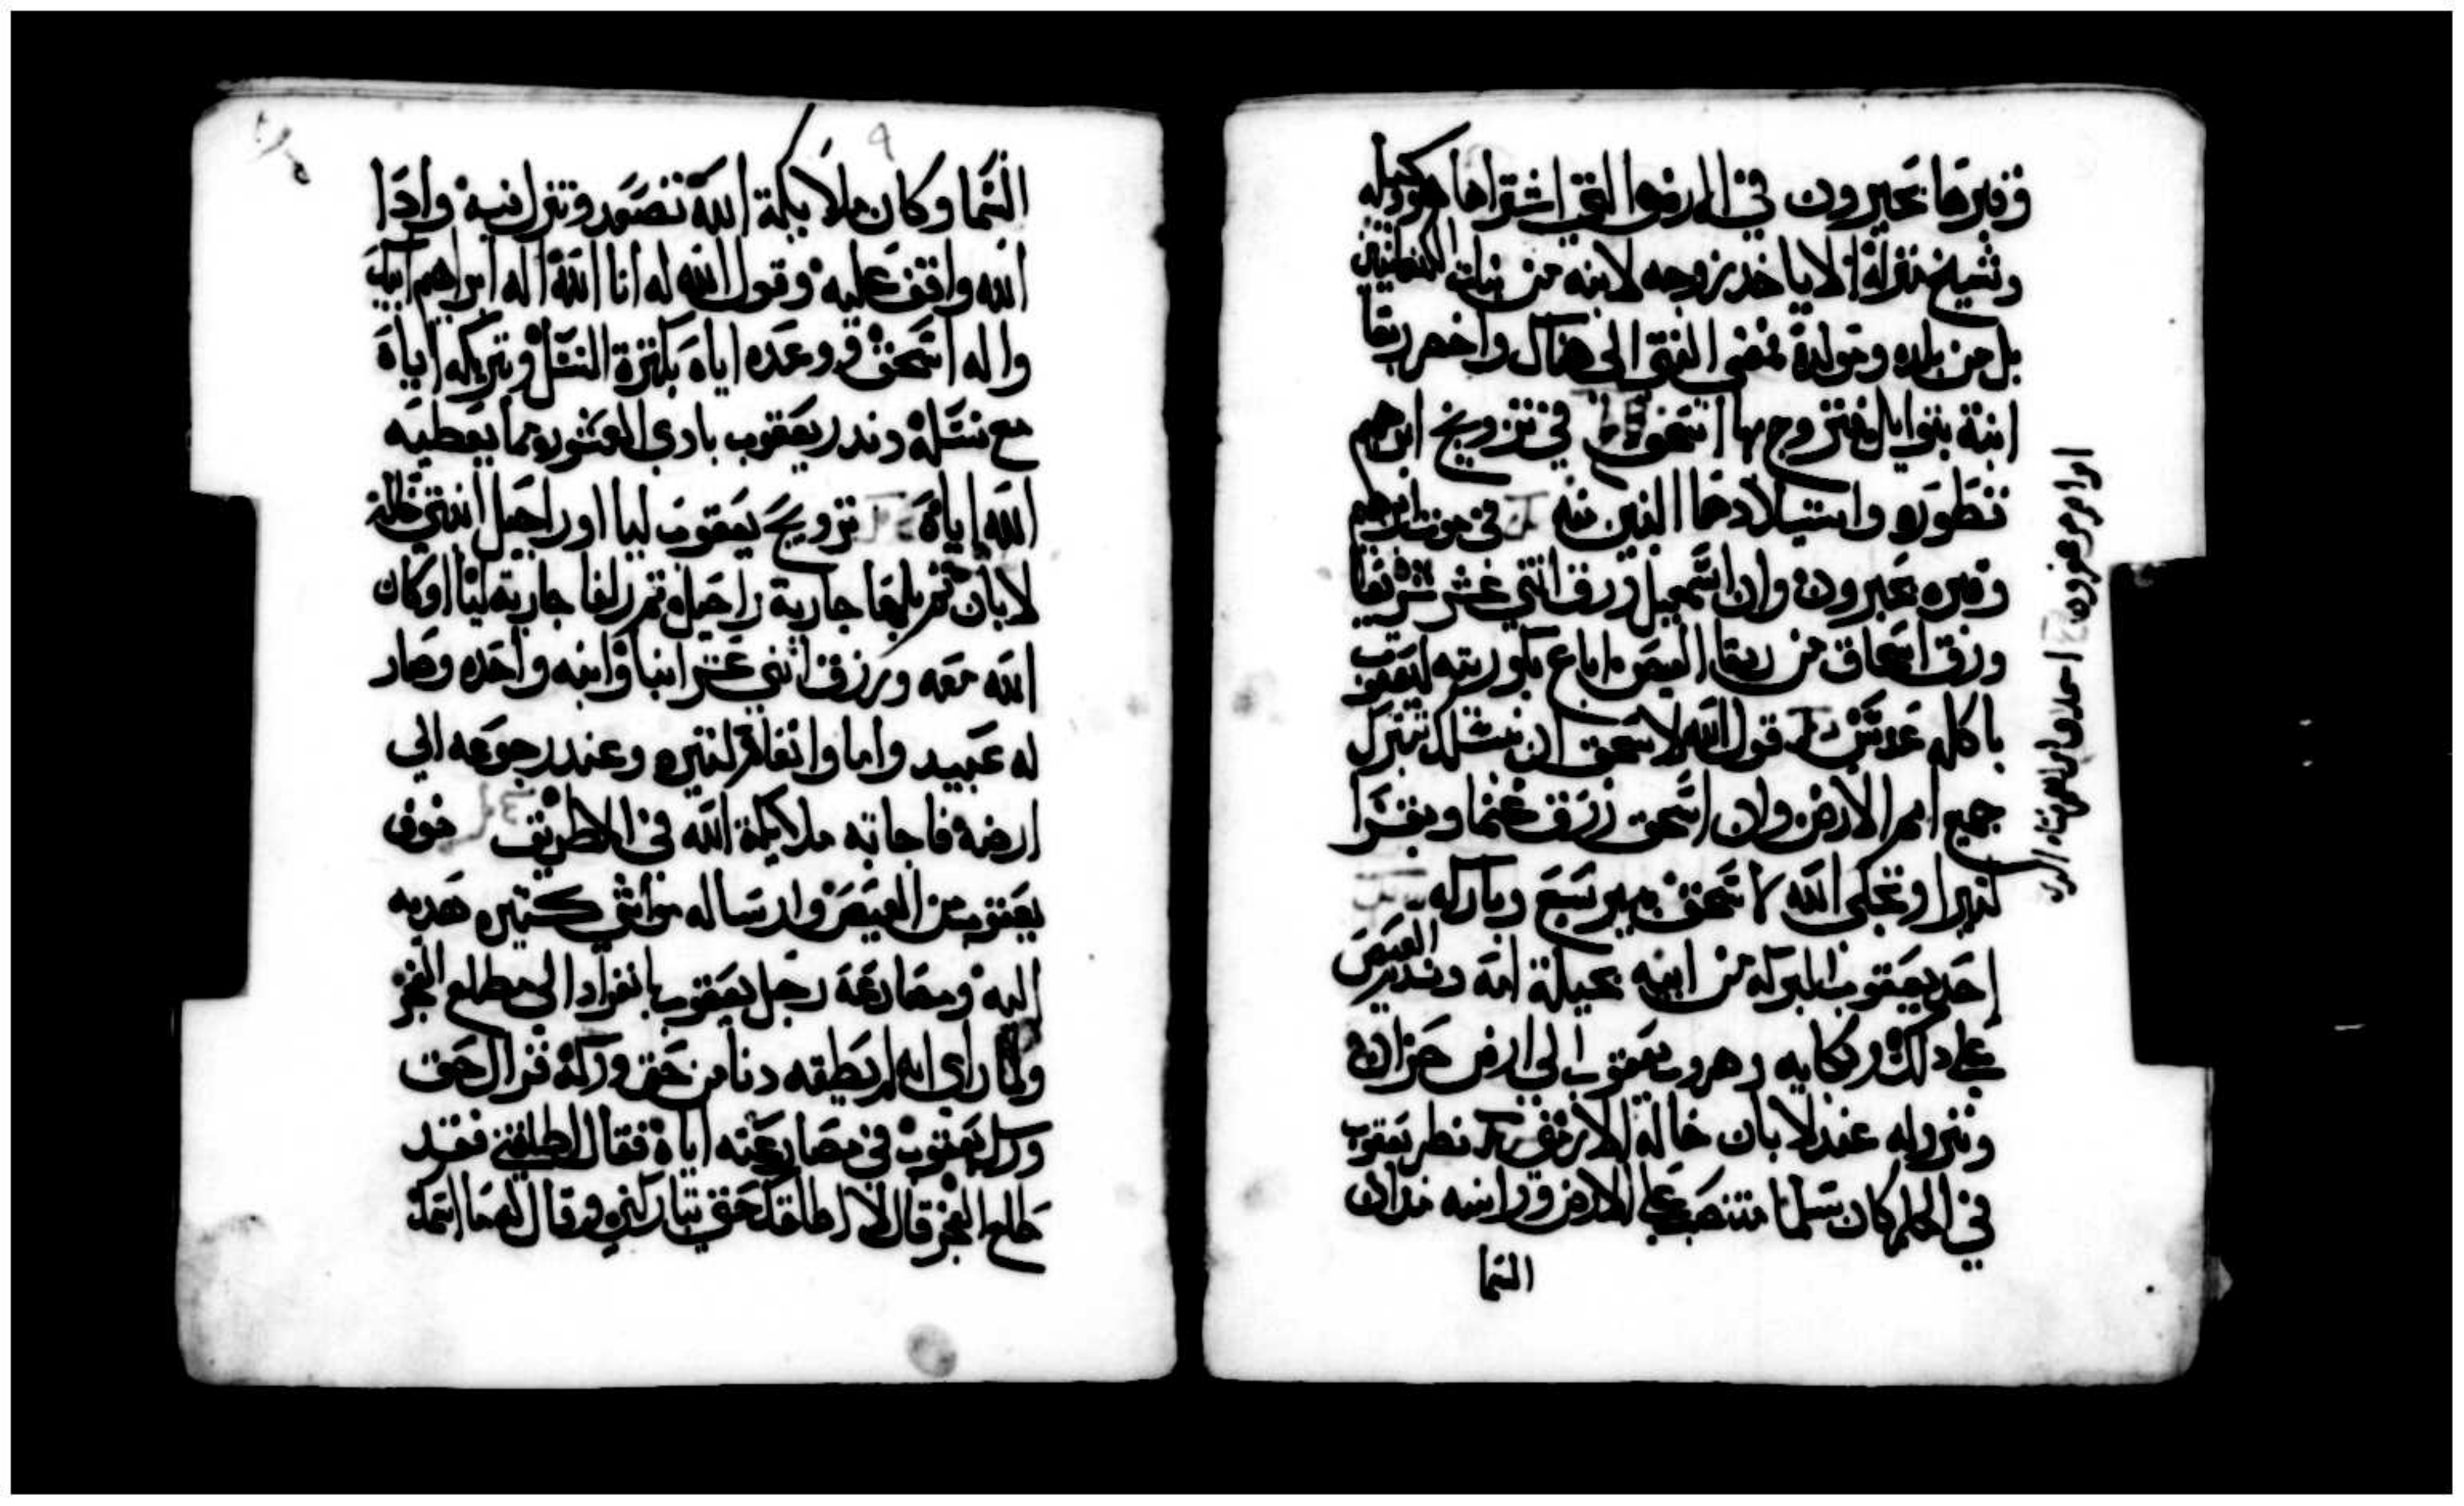 وقبرها بحبرون في المرضوا التي اشتراها هو وكيله
وشيخ منزله الا ياخد زوجه لابنه من بنات الكنعانيين
بل من بلده ومولده فمضي الفتي الي هناك واخضر ربقا
ابنة بتوايل فتزوج بها اسحق في تزويج ابرهيم
قطوره واستيلادها البنين منه في موت ابرهيم
وقبره بحبرون وان اسمعيل رزق اثني عشر شريفا
ورزق اسحاق من ربقا العيص اباع بكوريته ليعقوب
باكله عدس قول الله لاسحق ان بنسلك تتبرك
جميع امم الارض وان اسحق رزق غنما وبقرا
كثيرا وتجلي الله لاسحق ببير سبع وباركه
اخد يعقوب البركه من ابيه بحيلة امه وندم العيص
علي دلك وبكايه وهروب يعقوب الي ارض حران
ونزوله عند لابان خاله نظر يعقوب
في الحلم كان سلما منتصب علي الارض وراسه مدان
السما
السما وكان ملايكة الله تصعد وتنزل فيه وادا
الله واقف عليه وقول الله له انا الله اله ابراهيم ابيك
واله اسحق ووعده اياه بكثرة النسل وتبريكه اياه
مع نسله وندر يعقوب بادي العشور مما يعطيه
الله اياه تزويج يعقوب ليا اوراحيل ابنتي خاله
لابان ثم بلها جارية راحيل وثم زلفا جارية ليا اوكان
الله معه ورزق اثني عشر ابنا وابنه واحده وصار
له عبيد واما وانعام كثيره وعند رجوعه الي
ارضه فاجاته ملايكة الله في الطريق خوف
يعقوب من العيص وارساله مواشي كثيره هديه
اليه ومصارعة رجل يعقوب بانفراد الي مطلع الفجر
ولما راي انه لم يطيقه دنا من حق وركه فزال حق
ورك يعقوب في مصارعته اياه فقال اطلقني فقد
طلع الفجر قال لا اطلقك حتي تباركني وقال له ما اسمك